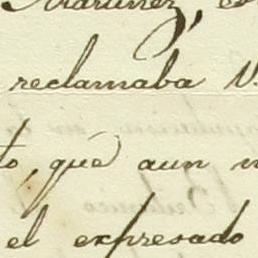 Martinez, es
reclamaba V.
to, que aun n
el expresado